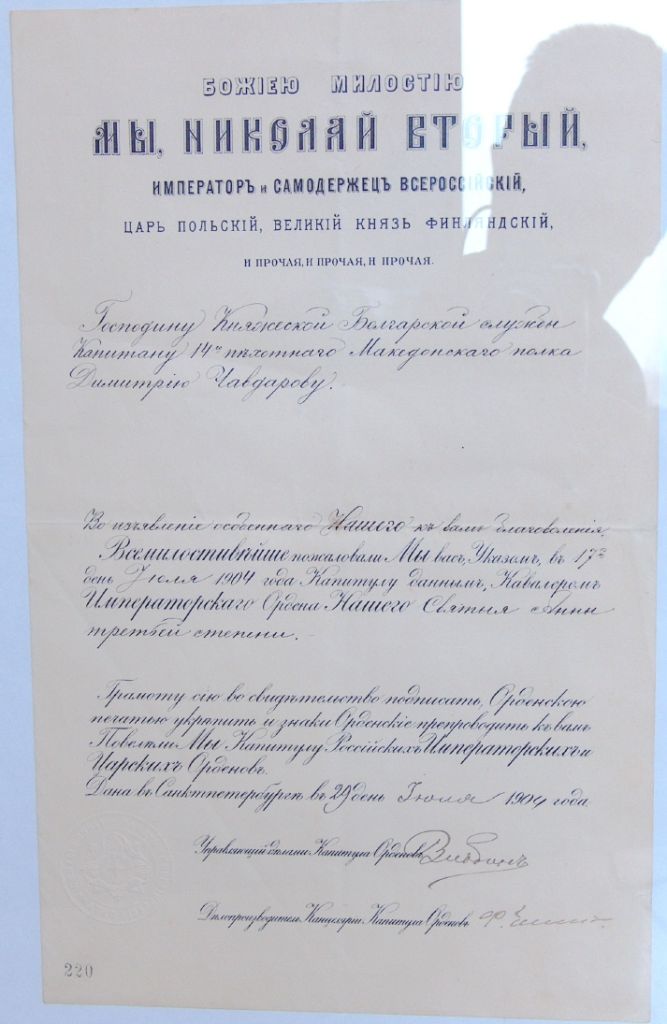 БОЖІЕЮ МИЛОСТІЮ
МЫ, НИКОЛАЙ ВТОРЫЙ,
ИМПЕРАТОРЪ и САМОДЕРЖЕЦЪ ВСЕРОССІЙСКІЙ,
ЦАРЬ ПОЛЬСКІЙ, ВЕЛИКІЙ КНЯЗЬ ФИНЛЯНДСКІЙ,
И ПРОЧАЯ, И ПРОЧАЯ, И ПРОЧАЯ.
Господину Княжеской Болгарской службы
Капитану 14го пѣхотнаго Македонскаго полка
Димитрію Чавдарову.
Во изъявленіе особеннаго Нашего къ вамъ благоволенія,
Всемилостивѣйше пожаловали Мы васъ, Указомъ, въ 17й
день Іюля 1904 года Капитулу даннымъ, Кавалеромъ
Императорскаго Ордена Нашего Святыя Анны
третьей степени. –
Грамоту сію во свидѣтельство подписать, Орденскою
печатью укрѣпить и знаки Орденскіе препроводить къ вамъ
Повелѣли Мы Капитулу Россійскихъ Императорскихъ и
Царскихъ Орденовъ.
Дана въ Санктпетербургѣ въ 29 день Іюля 1904 года
Управляющій дѣлами Капитула Орденовъ
Дѣлопроизводитель Канцеляріи Капитула Орденовъ
220